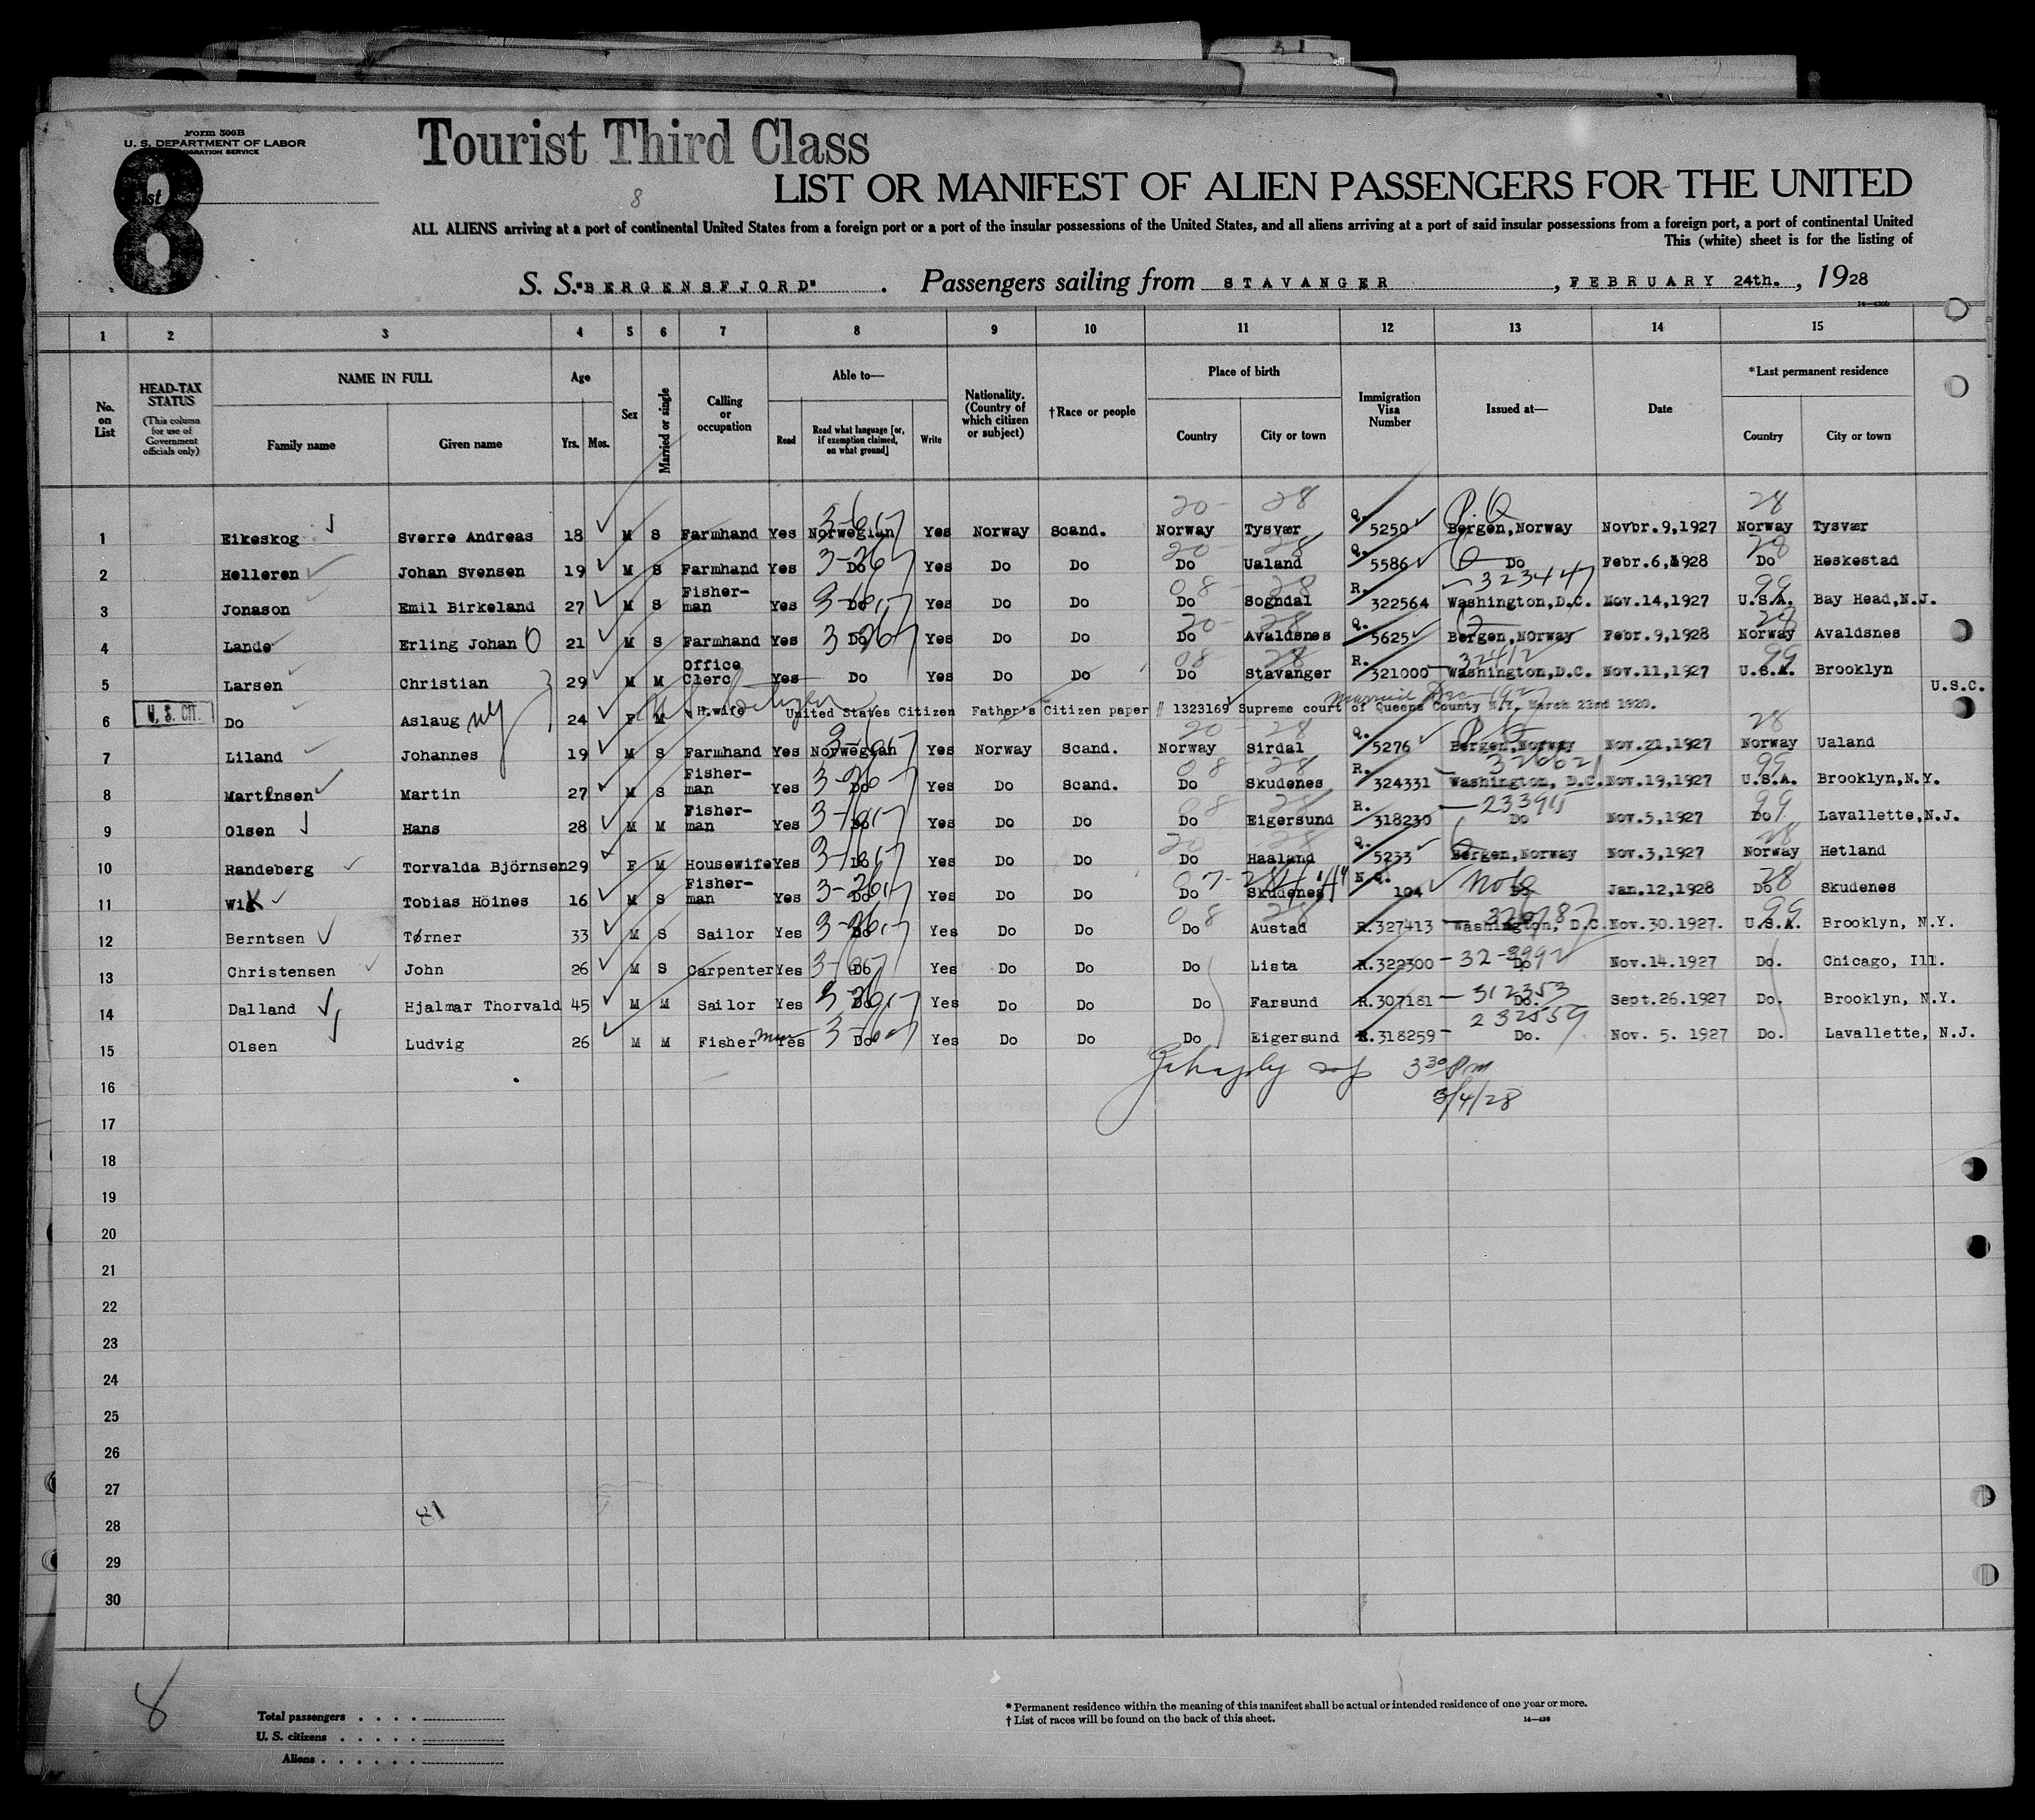 Form 500B
U. S. DEPARTMENT OF LABOR
IMMIGRATION SERVICE
Tourist Third Class
8
8
LIST OR MANIFEST OF ALIEN PASSENGERS FOR THE UNITED
ALL ALIENS arriving at a port of continental United States from a foreign port or a port of the insular possessions of the United States, and all aliens arriving at a port of said insular possessions from a foreign port, a port of continental United
This (white) sheet is for the listing of
S. S. "BERGENSFJORD". Passengers sailing from STAVANGER, FEBRUARY 24th., 1928
1 2 3 4 5 6 7 8 9 10 11 12 13 14 15
No. on List
HEAD-TAX STATUS (This column for use of Government officials only)
NAME IN FULL Family name Given name
Age Yrs. Mos.
Sex
Married or single
Calling or occupation
Able to— Read Read what language [or, if exemption claimed, on what ground] Write
Nationality. (Country of which citizen or subject)
†Race or people
Place of birth Country City or town
Immigration Visa Number
Issued at—
Date
*Last permanent residence Country City or town
20- 28 P.O 28
1 Eikeskog Sverre Andreas 18 M S Farmhand Yes Norwegian Yes Norway Scand. Norway Tysvær Q. 5250 Bergen,Norway Novbr.9,1927 Norway Tysvær
20- 28 28
2 Helleren Johan Svensen 19 M S Farmhand Yes Do Yes Do Do Do Ualand Q. 5586 Do Febr.6,1928 Do Heskestad
08-28 323447 99
3 Jonason Emil Birkeland 27 M S Fisher-man Yes Do Yes Do Do Do Sogndal R. 322564 Washington,D.C. Nov.14,1927 U.S.A. Bay Head,N.J.
20- 28 28
4 Lande Erling Johan O 21 M S Farmhand Yes Do Yes Do Do Do Avaldsnes Q. 5625 Bergen,Norway Febr.9,1928 Norway Avaldsnes
08 28 99
5 Larsen Christian 29 M M Office Clerc Yes Do Yes Do Do Do Stavanger R. 321000 Washington,D.C. Nov.11,1927 U.S.A. Brooklyn
U.S.C.
married Dec 1927
6 U. S. CIT. Do Aslaug 24 F M H.wife United States Citizen Father's Citizen paper # 1323169 Supreme court of Queens County N.Y. March 22nd 1920.
20 28 28
7 Liland Johannes 19 M S Farmhand Yes Norwegian Yes Norway Scand. Norway Sirdal Q. 5276 Bergen,Norway Nov.21,1927 Norway Ualand
08 28 99
8 Martinsen Martin 27 M S Fisher-man Yes Do Yes Do Scand. Do Skudenes R. 324331 Washington, D.C. Nov.19,1927 U.S.A. Brooklyn,N.Y.
08 28 99
9 Olsen Hans 28 M M Fisher-man Yes Do Yes Do Do Do Eigersund R. 318230 Do Nov.5,1927 Do Lavallette,N.J.
20 28 28
10 Randeberg Torvalda Björnsen 29 F M Housewife Yes Do Yes Do Do Do Haaland Q. 5233 Bergen,Norway Nov.3,1927 Norway Hetland
28
11 Wik Tobias Höines 16 M S Fisher-man Yes Do Yes Do Do Do Skudenes N.Q. 104 Do Jan.12,1928 Do Skudenes
08 28 99
12 Berntsen Tørner 33 M S Sailor Yes Do Yes Do Do Do Austad R.327413 Washington, D.C. Nov.30.1927. U.S.A. Brooklyn, N.Y.
13 Christensen John 26 M S Carpenter Yes Do Yes Do Do Do Lista R.322300 Do Nov.14.1927 Do. Chicago, Ill.
312353
14 Dalland Hjalmar Thorvald 45 M M Sailor Yes Do Yes Do Do Do Farsund R.307181 Do. Sept.26.1927 Do. Brooklyn, N.Y.
232559
15 Olsen Ludvig 26 M M Fisher man Yes Do Yes Do Do Do Eigersund R.318259 Do. Nov. 5. 1927 Do. Lavallette, N.J.
3 30 Pm
3/4/28
16
17
18
19
20
21
22
23
24
25
26
27
28
29
30
81
8
Total passengers
U. S. citizens
Aliens
* Permanent residence within the meaning of this manifest shall be actual or intended residence of one year or more.
† List of races will be found on the back of this sheet.
14—430